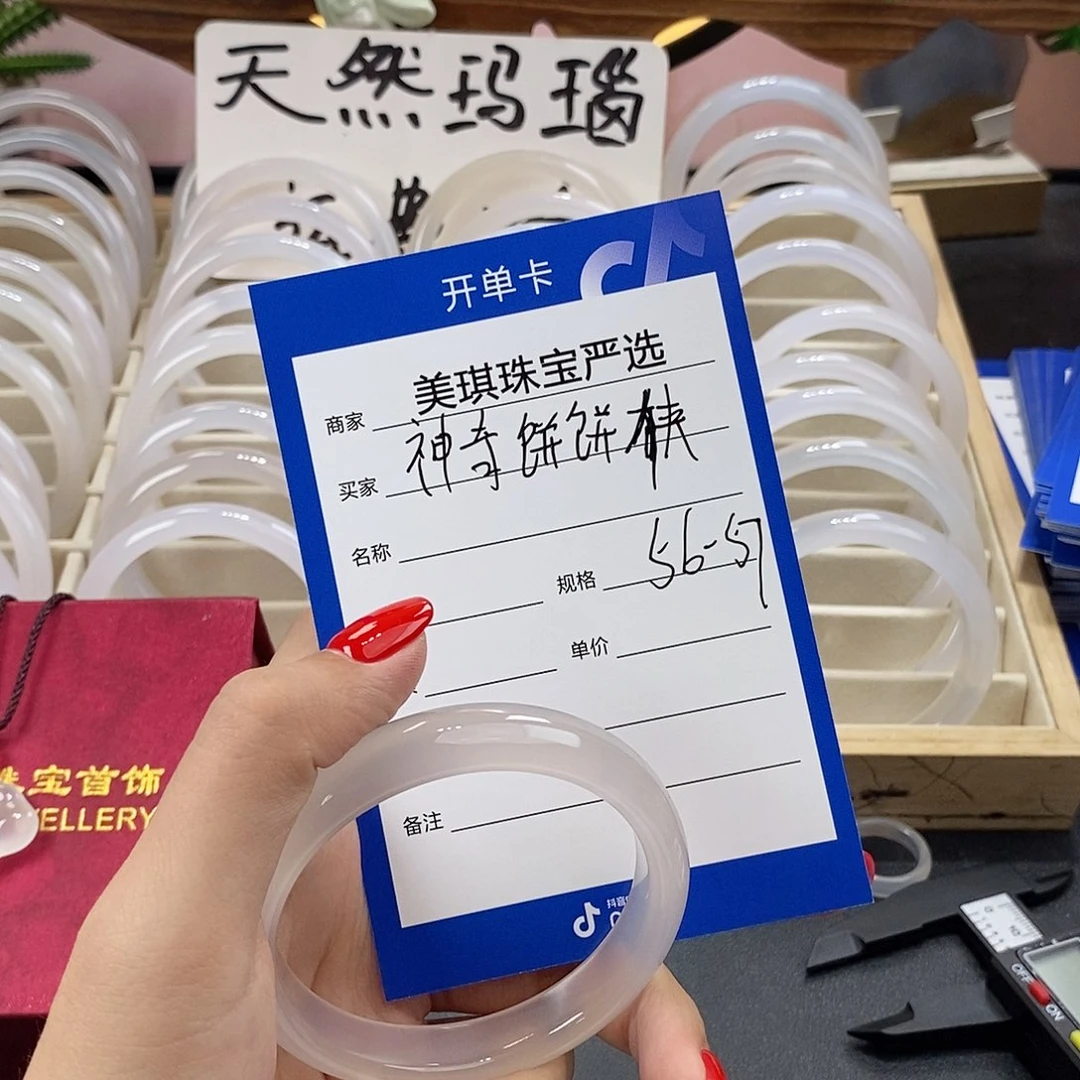 天然玛瑙
开单卡
商家 美琪珠宝严选
买家 神奇饼饼
名称
规格 56-57
单价
备注
珠宝首饰
ELLERY
OFF
ON